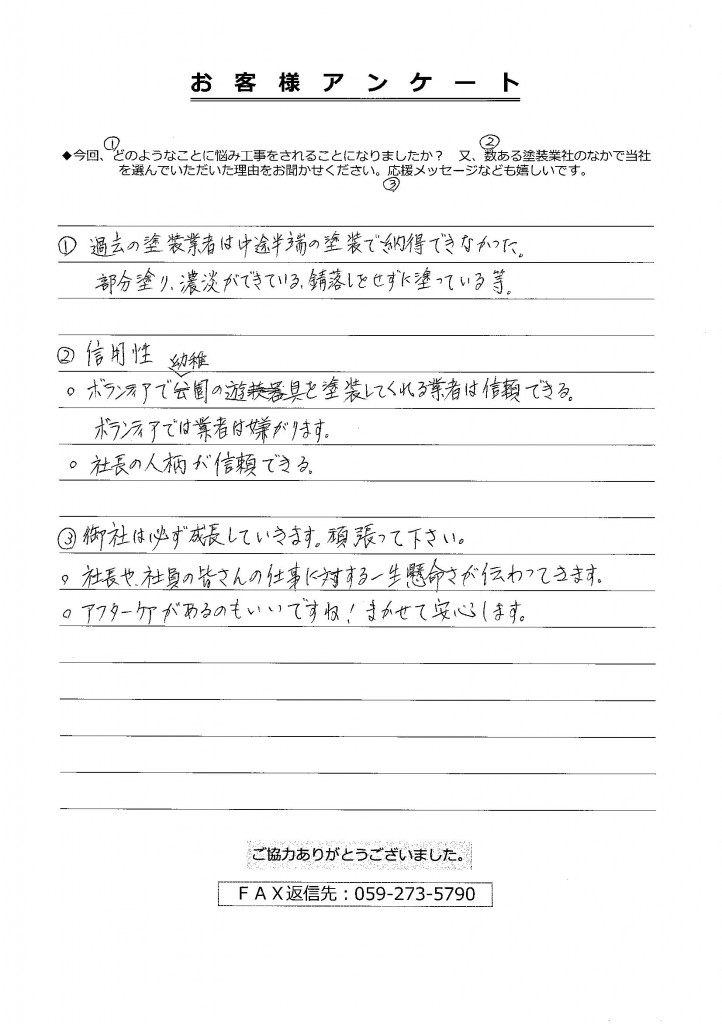 お客様アンケート
① ②
◆今回、どのようなことに悩み工事をされることになりましたか？ 又、数ある塗装業社のなかで当社
を選んでいただいた理由をお聞かせください。応援メッセージなども嬉しいです。
③
① 過去の塗装業者は中途半端の塗装で納得できなかった。
部分塗り、濃淡ができている、錆落しをせずに塗っている等。
② 信用性
幼稚
○ ボランティアで公園の遊装器具を塗装してくれる業者は信頼できる。
ボランティアでは業者は嫌がります。
○ 社長の人柄が信頼できる。
③ 御社は必ず成長していきます。頑張って下さい。
○ 社長や、社員の皆さんの仕事に対する一生懸命さが伝わってきます。
○ アフターケアがあるのもいいですね！まかせて安心します。
ご協力ありがとうございました。
ＦＡＸ返信先：059-273-5790